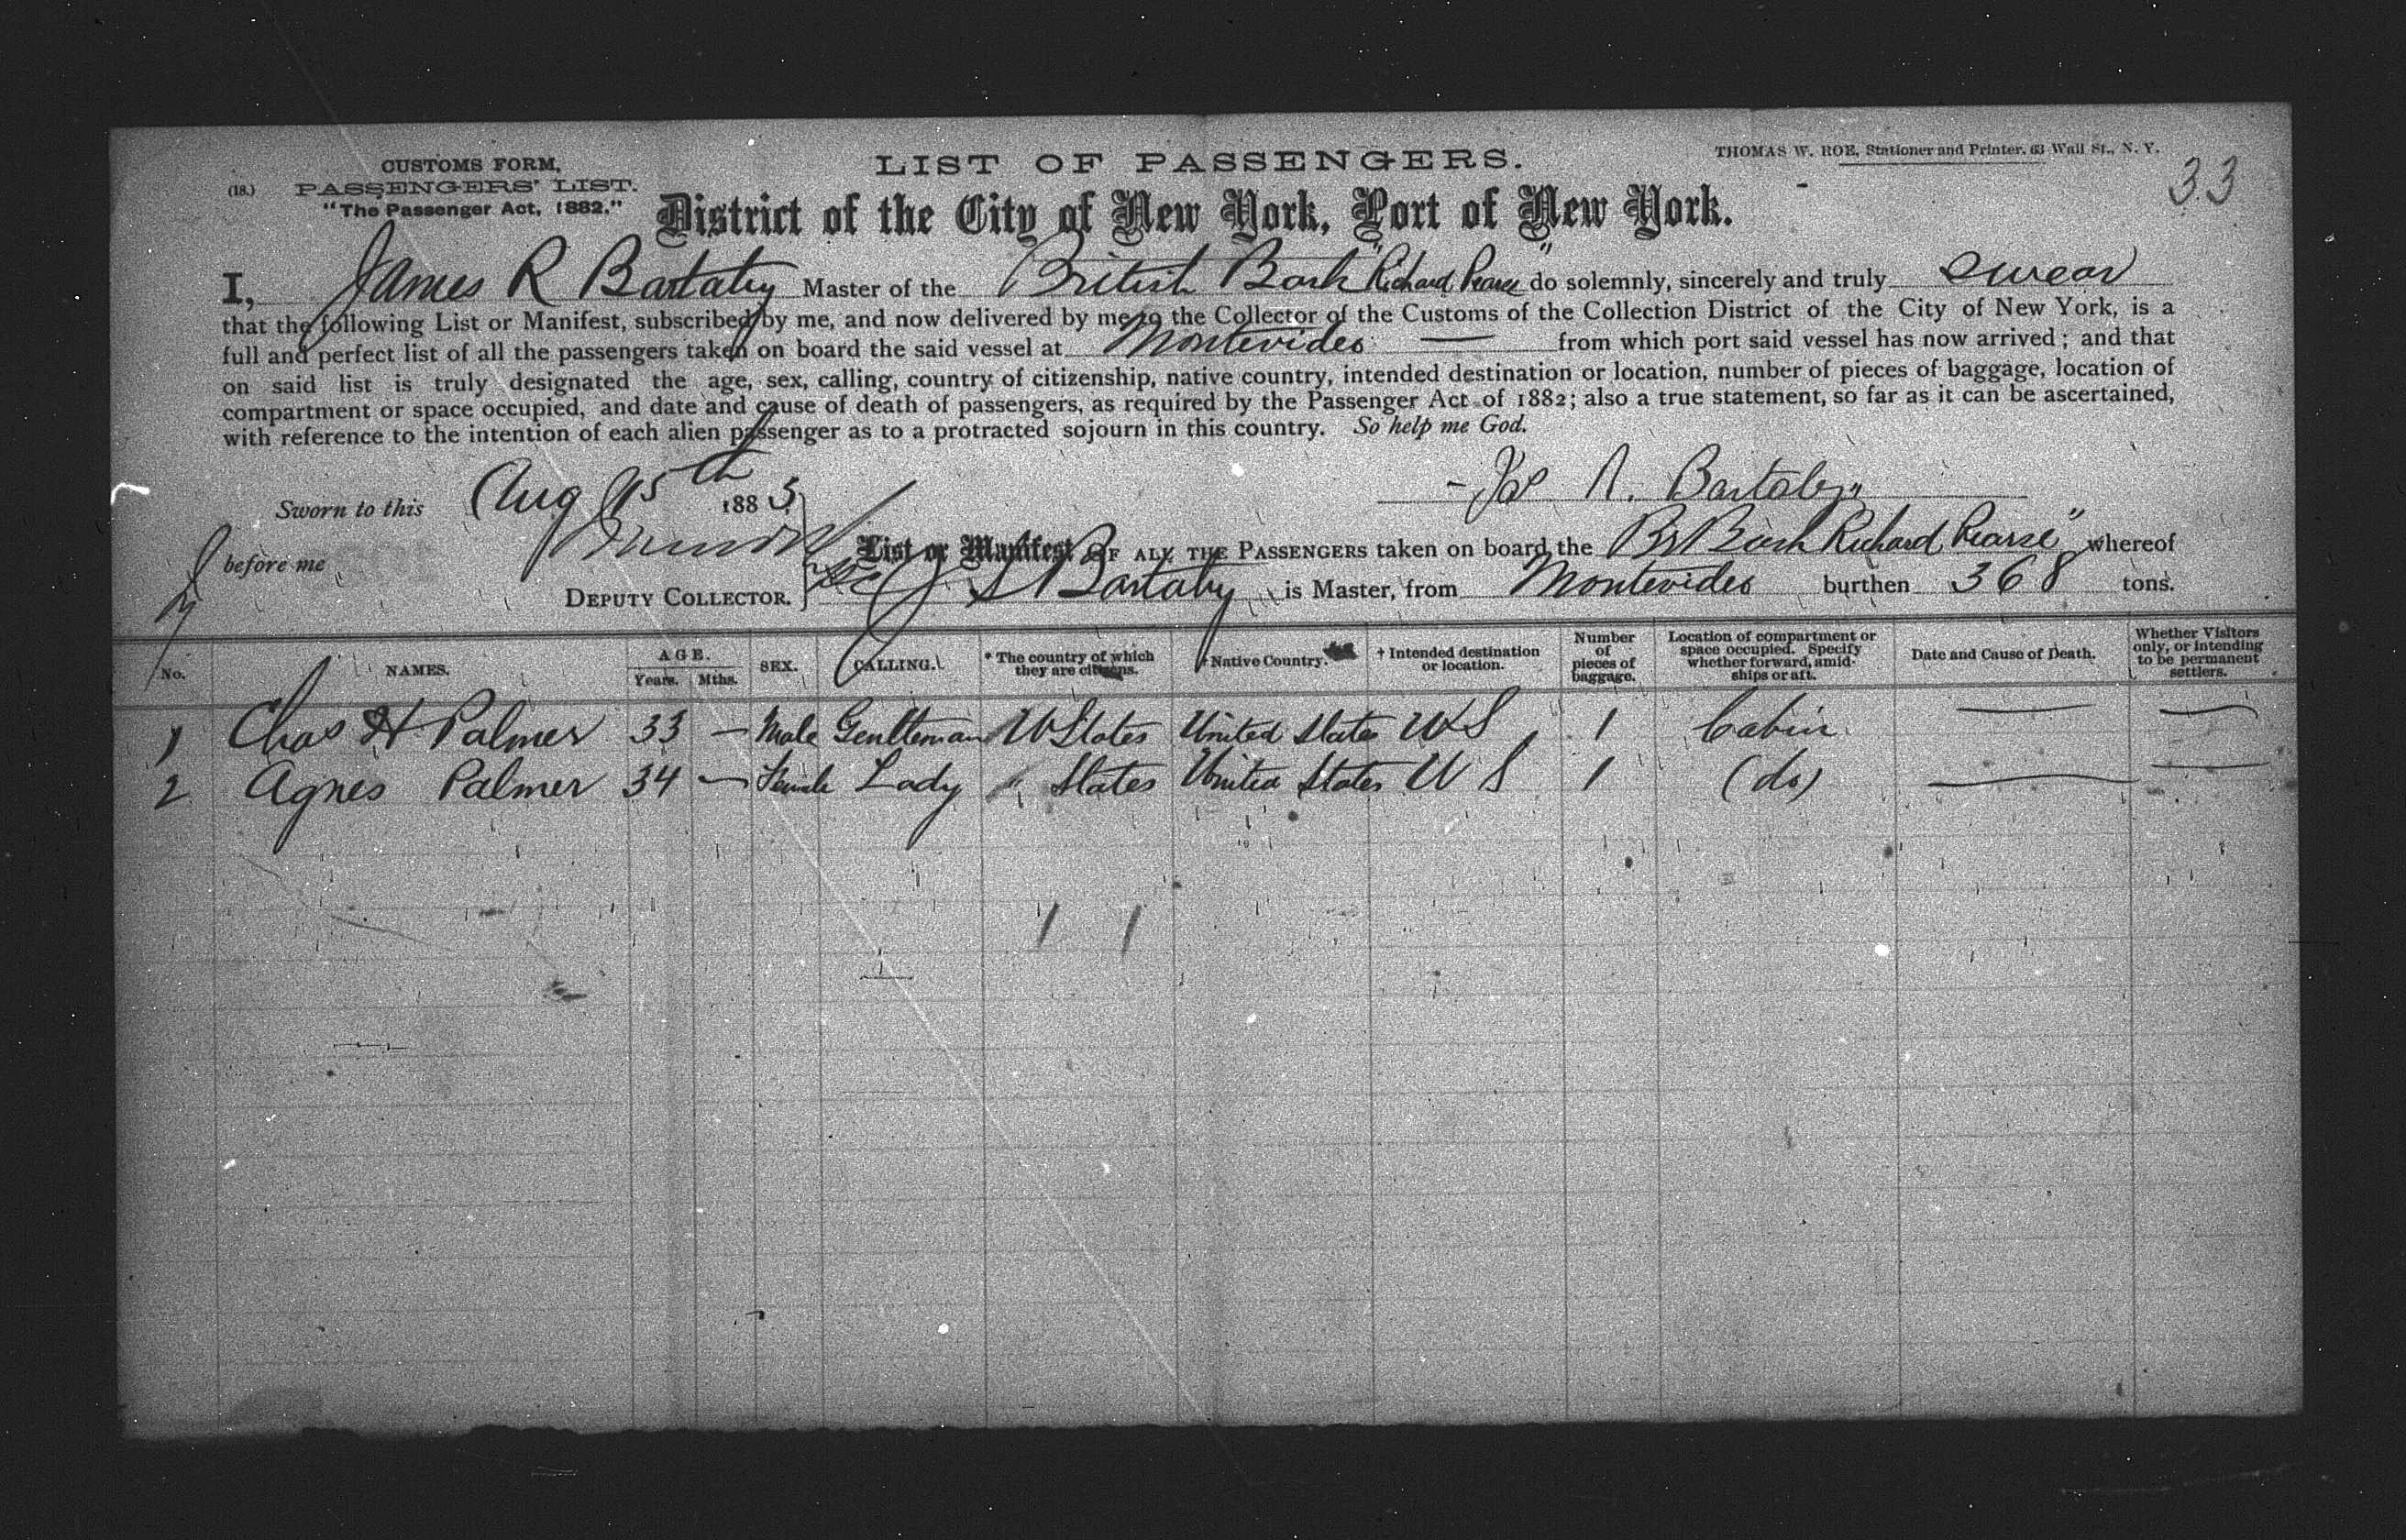 CUSTOMS FORM,
(18.) PASSENGERS' LIST.
"The Passenger Act, 1882."
LIST OF PASSENGERS.
THOMAS W. ROE, Stationer and Printer, 63 Wall St., N. Y.
33
District of the City of New York, Port of New York.
I, James R Bartaby Master of the British Bark "Richard Pearse" do solemnly, sincerely and truly swear
that the following List or Manifest, subscribed by me, and now delivered by me to the Collector of the Customs of the Collection District of the City of New York, is a
full and perfect list of all the passengers taken on board the said vessel at Montevideo — from which port said vessel has now arrived; and that
on said list is truly designated the age, sex, calling, country of citizenship, native country, intended destination or location, number of pieces of baggage, location of
compartment or space occupied, and date and cause of death of passengers, as required by the Passenger Act of 1882; also a true statement, so far as it can be ascertained,
with reference to the intention of each alien passenger as to a protracted sojourn in this country. So help me God.
Sworn to this Aug 15th 1883
Jas R. Bartaby
before me
List or Manifest OF ALL THE PASSENGERS taken on board the Br Bark Richard Pearse" whereof
DEPUTY COLLECTOR. Bartaby is Master, from Montevideo burthen 368 tons.
No. NAMES. AGE. Years. Mths. SEX. CALLING. * The country of which they are citizens. † Native Country. † Intended destination or location. Number of pieces of baggage. Location of compartment or space occupied. Specify whether forward, amid-ships or aft. Date and Cause of Death. Whether Visitors only, or intending to be permanent settlers.
1 Chas H Palmer 33 — Male Gentleman U States United States U S 1 Cabin — —
2 Agnes Palmer 34 — Female Lady " States United States U S 1 (do) — —
1 1